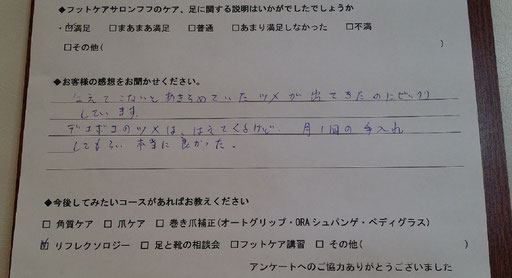 ◆フットケアサロンフフのケア、足に関する説明はいかがでしたでしょうか
・☑満足　□まあまあ満足　□普通　□あまり満足しなかった　□不満
□その他(　　　)
◆お客様の感想をお聞かせください。
はえてこないとあきらめていたツメが出てきたのにびっくり
しています。
デコボコのツメは、はえてくるけど、月1回の手入れ
してもらい本当に良かった。
◆今後してみたいコースがあればお教えください
□ 角質ケア　□ 爪ケア　□ 巻き爪補正(オートグリップ・ORAシュパンゲ・ペディグラス)
☑ リフレクソロジー　□ 足と靴の相談会　□フットケア講習　□ その他(　　　)
アンケートへのご協力ありがとうございました